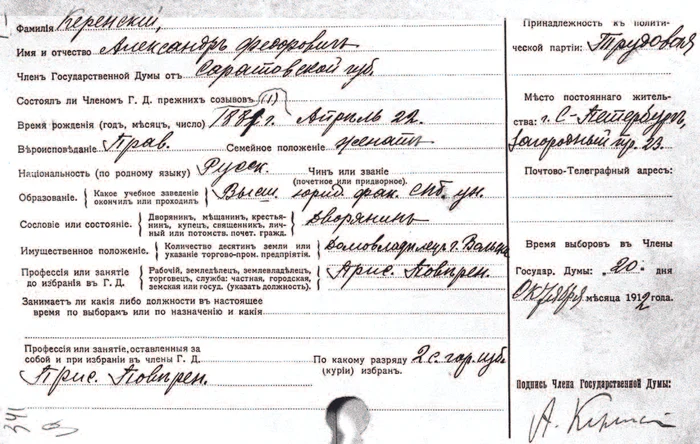 Фамилія Керенскій,
Имя и отчество Александръ Федоровичъ
Членъ Государственной Думы отъ Саратовской губ.
Состоялъ ли Членомъ Г. Д. прежнихъ созывовъ
Время рожденія (годъ, мѣсяцъ, число) 1881 г. Апрѣль 22.
Вѣроисповѣданіе Прав. Семейное положеніе женатъ
Національность (по родному языку) Русск. Чинъ или званіе
(почетное или придворное).
Образованіе: Какое учебное заведеніе
окончилъ или проходилъ Высш. юрид. фак. Спб. ун.
Сословіе или состояніе. Дворянинъ, мѣщанинъ, крестья-
нинъ, купецъ, священникъ, лич-
ный или потомств. почет. гражд. Дворянинъ
Имущественное положеніе. Количество десятинъ земли или
указаніе торгово-пром. предпріятія. Домовладѣлецъ г. Вольска
Профессія или занятіе
до избранія въ Г. Д. Рабочій, земледѣлецъ, землевладѣлецъ,
торговецъ, служба: частная, городская,
земская или госуд. (указать должность). Прис. Повѣрен.
Занимаетъ ли какія либо должности въ настоящее
время по выборамъ или по назначенію и какія
Профессія или занятіе, оставленныя за
собой и при избраніи въ члены Г. Д.
Прис. Повѣрен.
По какому разряду
(куріи) избранъ. 2 с. гор. губ.
341
Принадлежность къ полити-
ческой партіи: Трудовая
Мѣсто постояннаго житель-
ства: г. С-Петербургъ,
Загородный пр. 23.
Почтово-Телеграфный адресъ:
Время выборовъ въ Члены
Государ. Думы: 20 дня
Октября мѣсяца 1912 года.
Подпись Члена Государственной Думы:
А. Керенскій